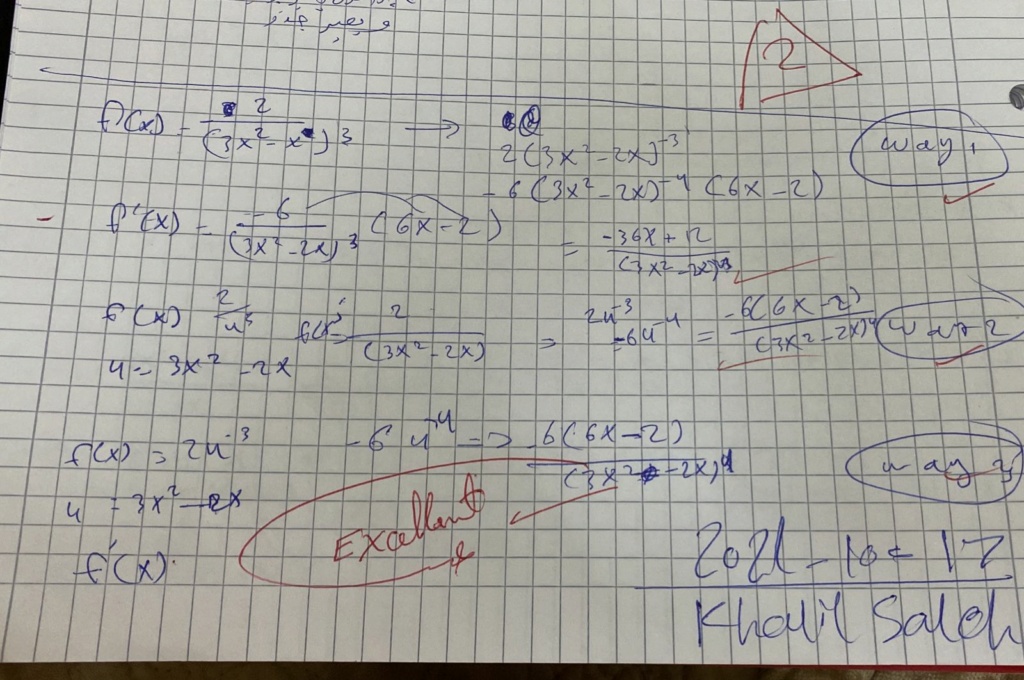 2
f(x) = 2/(3x² - x)3 → 2(3x² - 2x)⁻³
way 1
-6(3x² - 2x)⁻⁴ (6x - 2)
- f'(x) = -6/(3x² - 2x)3 (6x - 2) = -36x + 12/(3x² - 2x)
f(x) 2/u³ = 2/(3x² - 2x) = 2u⁻³
-6u⁻⁴ = -6(6x - 2)/(3x² - 2x)4
way 2
u = 3x² - 2x
f(x) = 2u⁻³ -6u⁻⁴ -> -6(6x - 2)/(3x² - 2x)4
way 3
u = 3x² - 2x
Excellent
f'(x).
2021 - 10 - 17
Khalil Saleh